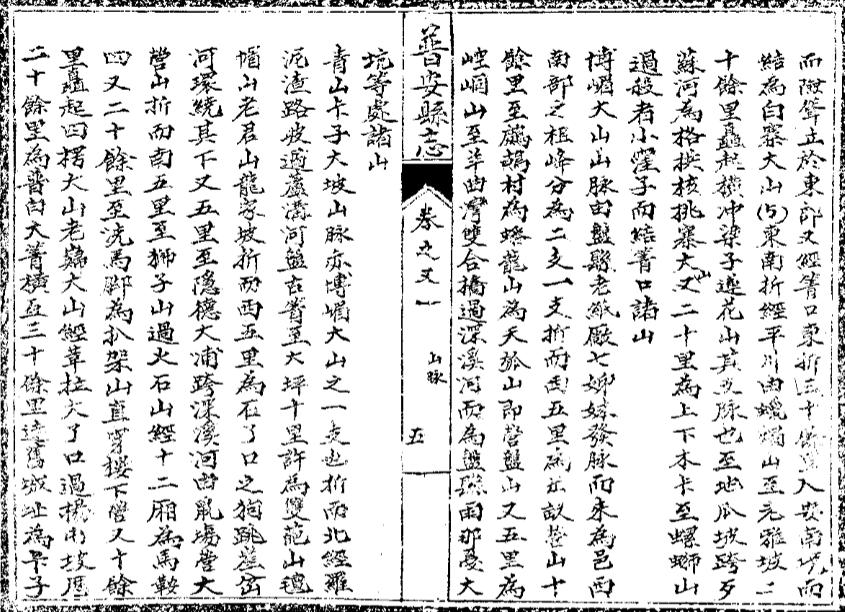 而陡聳立於東郎又經箐口東折三十餘里入安南境而
結為白寨大山(15)東南折經平川由蠟燭山至老雅坡二
十餘里矗起橫冲梁子蓮花山其支脉也至地瓜坡跨歹
蘇河為格挨核桃寨大山又二十里為上下木卡至螺螄山
過殷者小窪子而結箐口諸山
博嵋大山山脉由盤縣老紙廠七姊妹發脉而來為邑西
南部之祖峰分為二支一支折而西五里為 山十
餘里至鷓鴣村為蟠龍山為天 山即營盤山又五里為
崆峒山至羊曲灣雙合橋過深溪河而為盤縣由那憂大
普安縣志
卷之又一
山脉
五
坑等處諸山
青山卡子大坡山脉亦博嵋大山之一支也折而北經羅
泥渣路坡過蘆溝河盤古箐至大坪十里許為雙 山氊
帽山老君山龍家坡折而西五里為石了口之狗跳崖岔
河環繞其下又五里至隐櫓大浦跨深溪河由鼠場營大
營山折而南五里至獅子山過火石山經十二廂為馬鞍
四又二十餘里至洗馬郰為扒架山直穿樓下營又十餘
里矗起四楞大山老 大山經革拉大了口過楊 坡歷
二十餘里為普白大箐橫亙三十餘里達舊城址為卡子